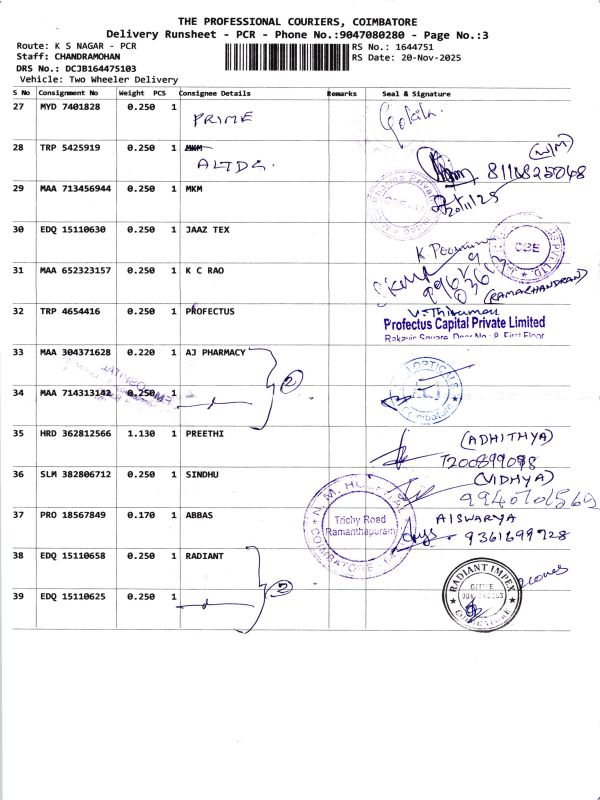 THE PROFESSIONAL COURIERS, COIMBATORE
Delivery Runsheet - PCR - Phone No.:9047080280 - Page No.:3
Route: K S NAGAR - PCR RS No.: 1644751
Staff: CHANDRAMOHAN RS Date: 20-Nov-2025
DRS No.: DCJB164475103
Vehicle: Two Wheeler Delivery
S No Consignment No Weight PCS Consignee Details Remarks Seal & Signature
27 MYD 7401828 0.250 1 PRIME Gokila.
28 TRP 5425919 0.250 1 MKM
ALTDG.
29 MAA 713456944 0.250 1 MKM 20/11/25
30 EDQ 15110630 0.250 1 JAAZ TEX CBE
31 MAA 652323157 0.250 1 K C RAO (RAMACHANDRAN)
32 TRP 4654416 0.250 1 PROFECTUS
Profectus Capital Private Limited
Rakavic Square, Door No : 8, First Floor
33 MAA 304371628 0.220 1 AJ PHARMACY 2
34 MAA 714313142 0.250 1 OPTICALS
Coimbatore
35 HRD 362812566 1.130 1 PREETHI (ADHITHYA)
36 SLM 382806712 0.250 1 SINDHU (VIDHYA)
9940701569
37 PRO 18567849 0.170 1 ABBAS AISWARYA
9361699728
N. M. HOSPITAL
Trichy Road
Ramanthapuram
COIMBATORE
38 EDQ 15110658 0.250 1 RADIANT 2
39 EDQ 15110625 0.250 1 RADIANT IMPEX
OFFICE
COIMBATORE
2 cones